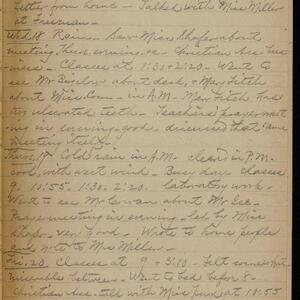 letter from home - Talked with Miss Miller
at Freeman -
Wed. 18 Rain. Saw Miss Shope about
meeting this evening, re - Christian Ass.
- Classes at 1:30 + 2:20. - Went to
see Mr Bigelow about desk, + May Fitch
about Miss - in A.M. - May Fitch has
ulcerated teeth. - Teachers' prayer meet-
ing in evening, good, discussed
meeting
Thurs. 19 Cold rain in A.M. cleared in P.M.
cool, with west wind - Busy day. classes
9. 10:55. 1:30. 2:20. laboratory work -
Went to see Mr about Mr
Prayermeeting in evening - led by Miss
Shope - very good - Wrote to home people
and note to Mr Miller -
Fri. 20 Classes at 9 + 3:10. - Felt somewhat
miserable between - Went to bed before 8 -
Christian Ass. - talk with Miss at 10:55